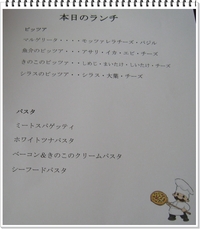 本日のランチ
ピッツア
マルゲリータ・・・・モッツァレラチーズ・バジル
魚介のピッツア・・・アサリ・イカ・エビ・チーズ
きのこのピッツア・・しめじ・まいたけ・しいたけ・チーズ
シラスのピッツア・・シラス・大葉・チーズ
パスタ
ミートスパゲッティ
ホワイトツナパスタ
ベーコン&きのこのクリームパスタ
シーフードパスタ